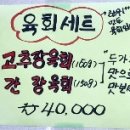 육회세트
고추장육회(150g)
간장육회(150g)
두가지
맛으로
맛보세
₩40,000